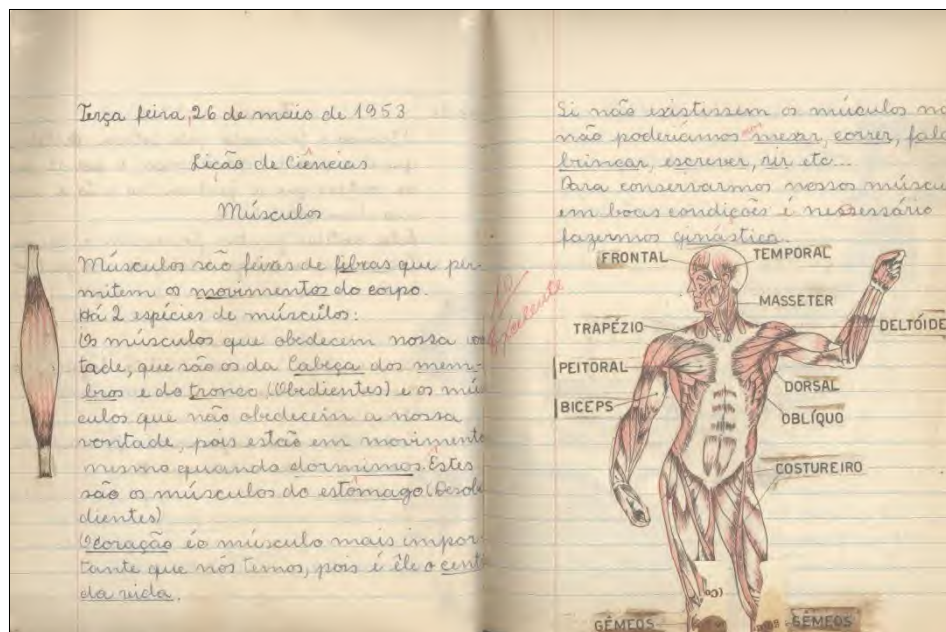 Terça feira, 26 de maio de 1953
Lição de Ciências
Músculos
Músculos são feixes de fibras que per-
mitem os movimentos do corpo.
Há 2 espécies de músculos:
Os músculos que obedecem nossa von
tade, que são os da Cabeça dos mem-
bros e do tronco (Obedientes) e os mús
culos que não obedecem a nossa
vontade, pois estão em movimento
mesmo quando dormimos. Êstes
são os músculos do estômago (Desobe
dientes)
O coração é o músculo mais impor
tante que nós temos, pois é êle o cent
da vida.
Si não existissem os múculos nó
não poderíamos mexer, correr, fala
brincar, escrever, rir etc...
Para conservarmos nossos múscu
em boas condições é nessessário
fazermos ginástica.
Excelente
FRONTAL
TEMPORAL
MASSETER
TRAPÉZIO
DELTÓIDE
PEITORAL
DORSAL
BICEPS
OBLÍQUO
COSTUREIRO
GÊMEOS
GÊMEOS